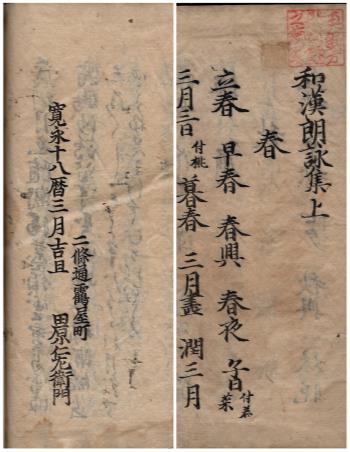 和漢朗詠集上
春
立春 早春 春興 春夜 子日 付若菜
三月三日 付桃 暮春 三月盡 潤三月
寛永十八暦三月吉旦
二條通鶴屋町
田原仁左衛門